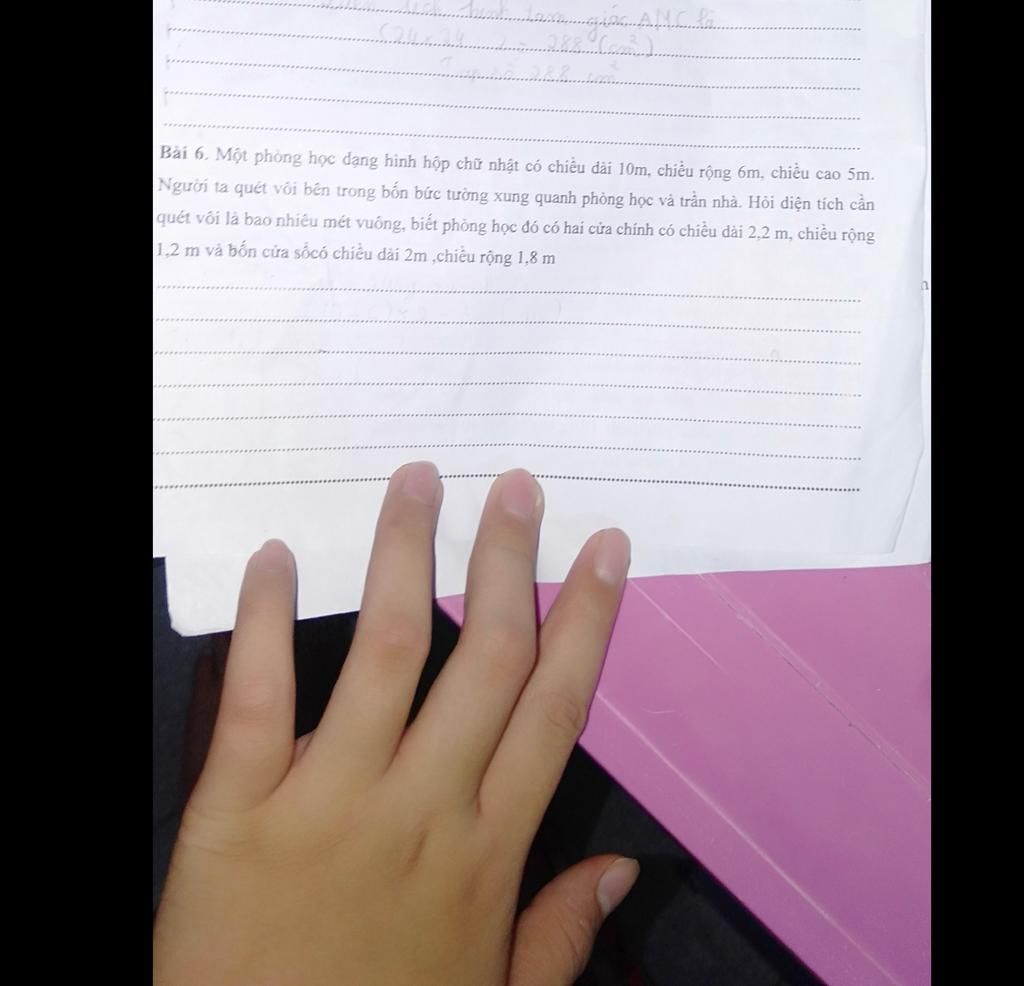 giác AMC là
(24 x 24 2 = 288 (cm²)
288 cm²
Bài 6. Một phòng học dạng hình hộp chữ nhật có chiều dài 10m, chiều rộng 6m, chiều cao 5m.
Người ta quét vôi bên trong bốn bức tường xung quanh phòng học và trần nhà. Hỏi diện tích cần
quét vôi là bao nhiêu mét vuông, biết phòng học đó có hai cửa chính có chiều dài 2,2 m, chiều rộng
1,2 m và bốn cửa sổcó chiều dài 2m ,chiều rộng 1,8 m